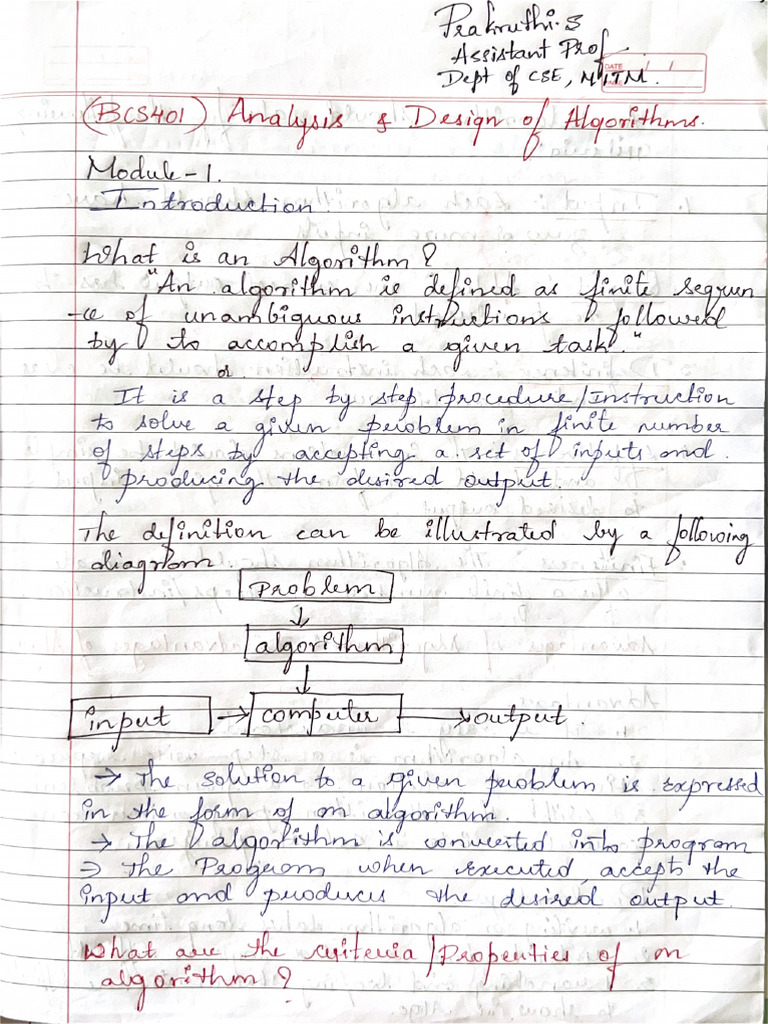 Prakruthi.S
Assistant Prof
Dept of CSE, MITM.
DATE / /
(BCS401) Analysis & Design of Algorithms.
Module-1.
Introduction.
What is an Algorithm?
"An algorithm is defined as finite sequen
-ce of unambiguous instructions followed
by to accomplish a given task."
or
It is a step by step procedure/Instruction
to solve a given problem in finite number
of steps by accepting a set of inputs and
producing the desired output.
The definition can be illustrated by a following
diagram.
Problem
↓
algorithm
↓
input → computer → output.
→ The solution to a given problem is expressed
in the form of an algorithm.
→ The algorithm is converted into program
⇒ The Program when executed, accepts the
input and produces the desired output.
What are the criteria/Properties of an
algorithm?